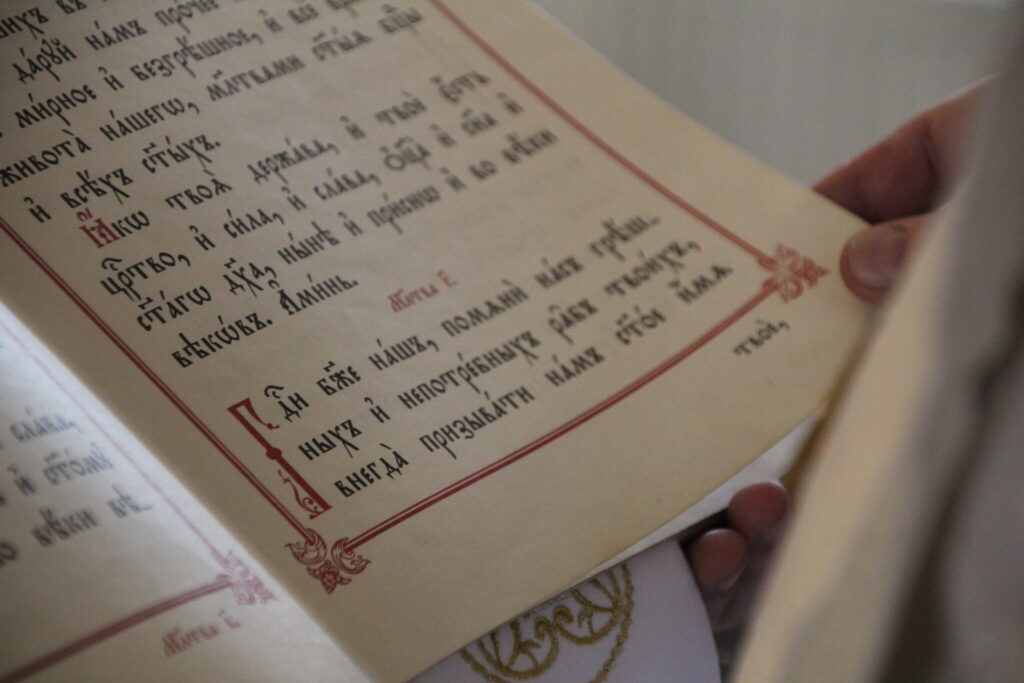 да́рꙋй на́мъ про́чее
ми́рное и҆ безгрѣ́шное, и҆ всѐ
живота̀ на́шегѡ, мл҃твами ст҃ы́ѧ бц҃ы
и҆ всѣ́хъ ст҃ы́хъ.
Ꙗ҆́кѡ твоѧ̀ держа́ва, и҆ твоѐ є҆́сть
црⷭ҇тво, и҆ си́ла, и҆ сла́ва, ѻ҆ц҃а̀ и҆ сн҃а и҆
ст҃а́гѡ дх҃а, ны́нѣ и҆ при́снѡ и҆ во вѣ́ки
вѣкѡ́въ. А҆ми́нь.
Мл҃тва є҃.
Гдⷭ҇и бж҃е на́шъ, помѧнѝ на́съ грѣ́ш-
ныхъ и҆ непотре́бныхъ ра̑бъ твои́хъ,
внегда̀ призыва́ти на́мъ ст҃о́е и҆́мѧ
твоѐ,
сла́ва,
и҆ ст҃о́мꙋ
вѣ́ки вѣ-
Мл҃тва є҃.